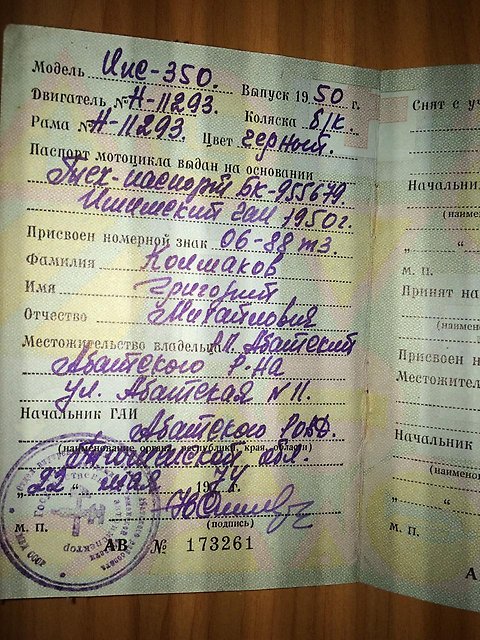 Модель Иж-350. Выпуск 1950 г.
Двигатель № Н-11293. Коляска б/к.
Рама № Н-11293. Цвет черный.
Паспорт мотоцикла выдан на основании
Тех-паспорт БК-955679.
Ишимский ГАИ 1950г.
Присвоен номерной знак 06-88 тз.
Фамилия Колмаков
Имя Григорий
Отчество
Местожительство владельца Абатский
Абатского р-на
ул. Абатская № 11.
Начальник ГАИ
Абатского РОВД.
(наименование органа, республики, края, области)
Тюменской обл.
„22“ мая 1974 г.
(подпись)
М. П.
АВ № 173261
Снят с уч
Начальник
(наимен
„ “
М. П.
Принят на
(наимено
Присвоен н
Местожител
Начальник
(наимено
„ “
М. П.
А